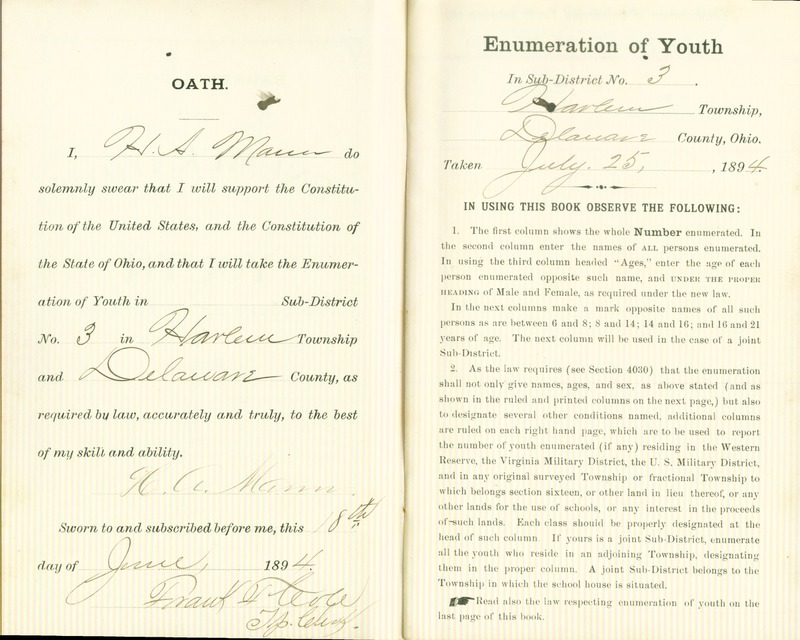 OATH.
I, H. A. Mann do
solemnly swear that I will support the Constitu-
tion of the United States, and the Constitution of
the State of Ohio, and that I will take the Enumer-
ation of Youth in Sub-District
No. 3 in Harlem Township
and Delaware County, as
required by law, accurately and truly, to the best
of my skill and ability.
H. A. Mann.
Sworn to and subscribed before me, this 18th
day of June, 1894.
Frank
Tp. Clerk.
Enumeration of Youth
In Sub-District No. 3.
Harlem Township,
Delaware County, Ohio.
Taken July. 25, , 1894.
IN USING THIS BOOK OBSERVE THE FOLLOWING:
1. The first column shows the whole Number enumerated. In
the second column enter the names of ALL persons enumerated.
In using the third column headed "Ages," enter the age of each
person enumerated opposite such name, and UNDER THE PROPER
HEADING of Male and Female, as required under the new law.
In the next columns make a mark opposite names of all such
persons as are between 6 and 8; 8 and 14; 14 and 16; and 16 and 21
years of age. The next column will be used in the case of a joint
Sub-District.
2. As the law requires (see Section 4030) that the enumeration
shall not only give names, ages, and sex, as above stated (and as
shown in the ruled and printed columns on the next page,) but also
to designate several other conditions named, additional columns
are ruled on each right hand page, which are to be used to report
the number of youth enumerated (if any) residing in the Western
Reserve, the Virginia Military District, the U. S. Military District,
and in any original surveyed Township or fractional Township to
which belongs section sixteen, or other land in lieu thereof, or any
other lands for the use of schools, or any interest in the proceeds
of such lands. Each class should be properly designated at the
head of such column. If yours is a joint Sub-District, enumerate
all the youth who reside in an adjoining Township, designating
them in the proper column. A joint Sub-District belongs to the
Township in which the school house is situated.
Read also the law respecting enumeration of youth on the
last page of this book.